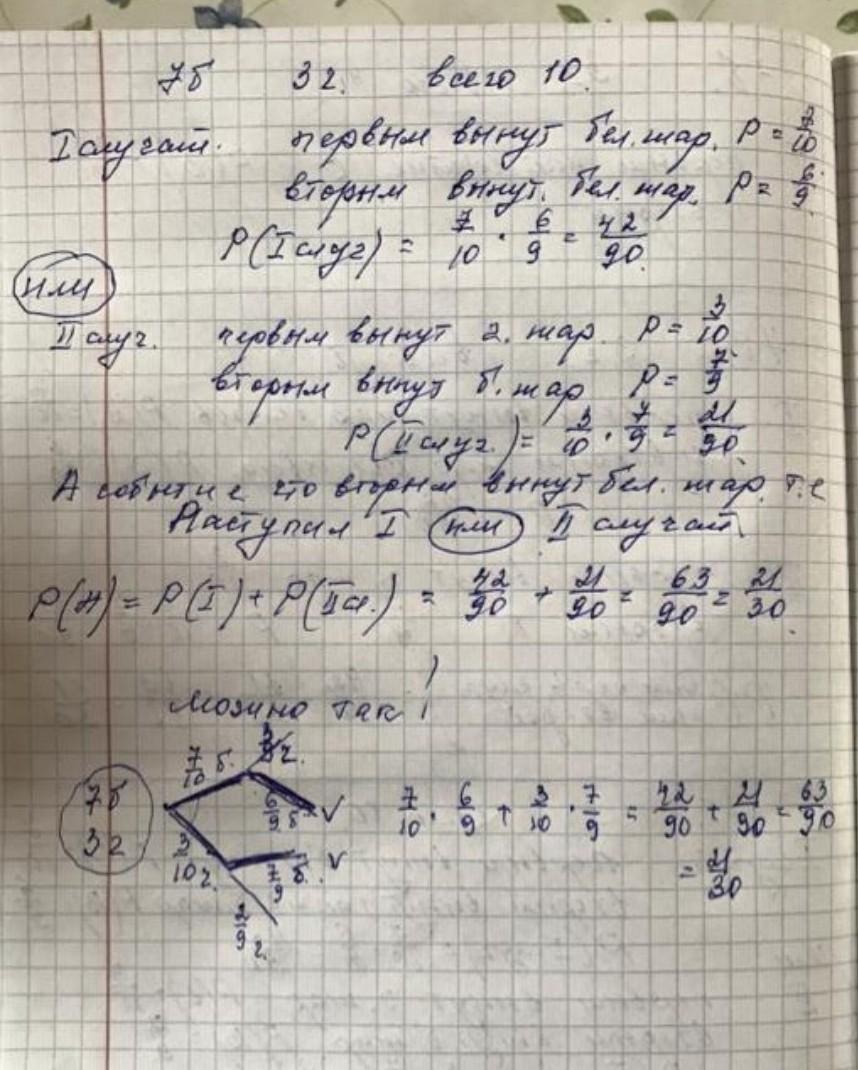 7б 3ч. всего 10.
I случай. первым вынут бел. шар. P = 7/10
вторым вынут. бел. шар. P = 6/9
P(I случ) = 7/10 · 6/9 = 42/90.
или
II случ. первым вынут ч. шар. P = 3/10
вторым вынут б. шар P = 7/9
P(II случ.) = 3/10 · 7/9 = 21/90
А событие что вторым вынут бел. шар. т.е
Наступил I или II случай.
P(A) = P(I) + P(II сл.) = 42/90 + 21/90 = 63/90 = 21/30.
Можно так!
7/10 б. 3/9 ч.
7б 6/9 б ✓ 7/10 · 6/9 + 3/10 · 7/9 = 42/90 + 21/90 = 63/90
3ч 3/10 ч. 7/9 б. ✓ = 21/30
2/9 ч.